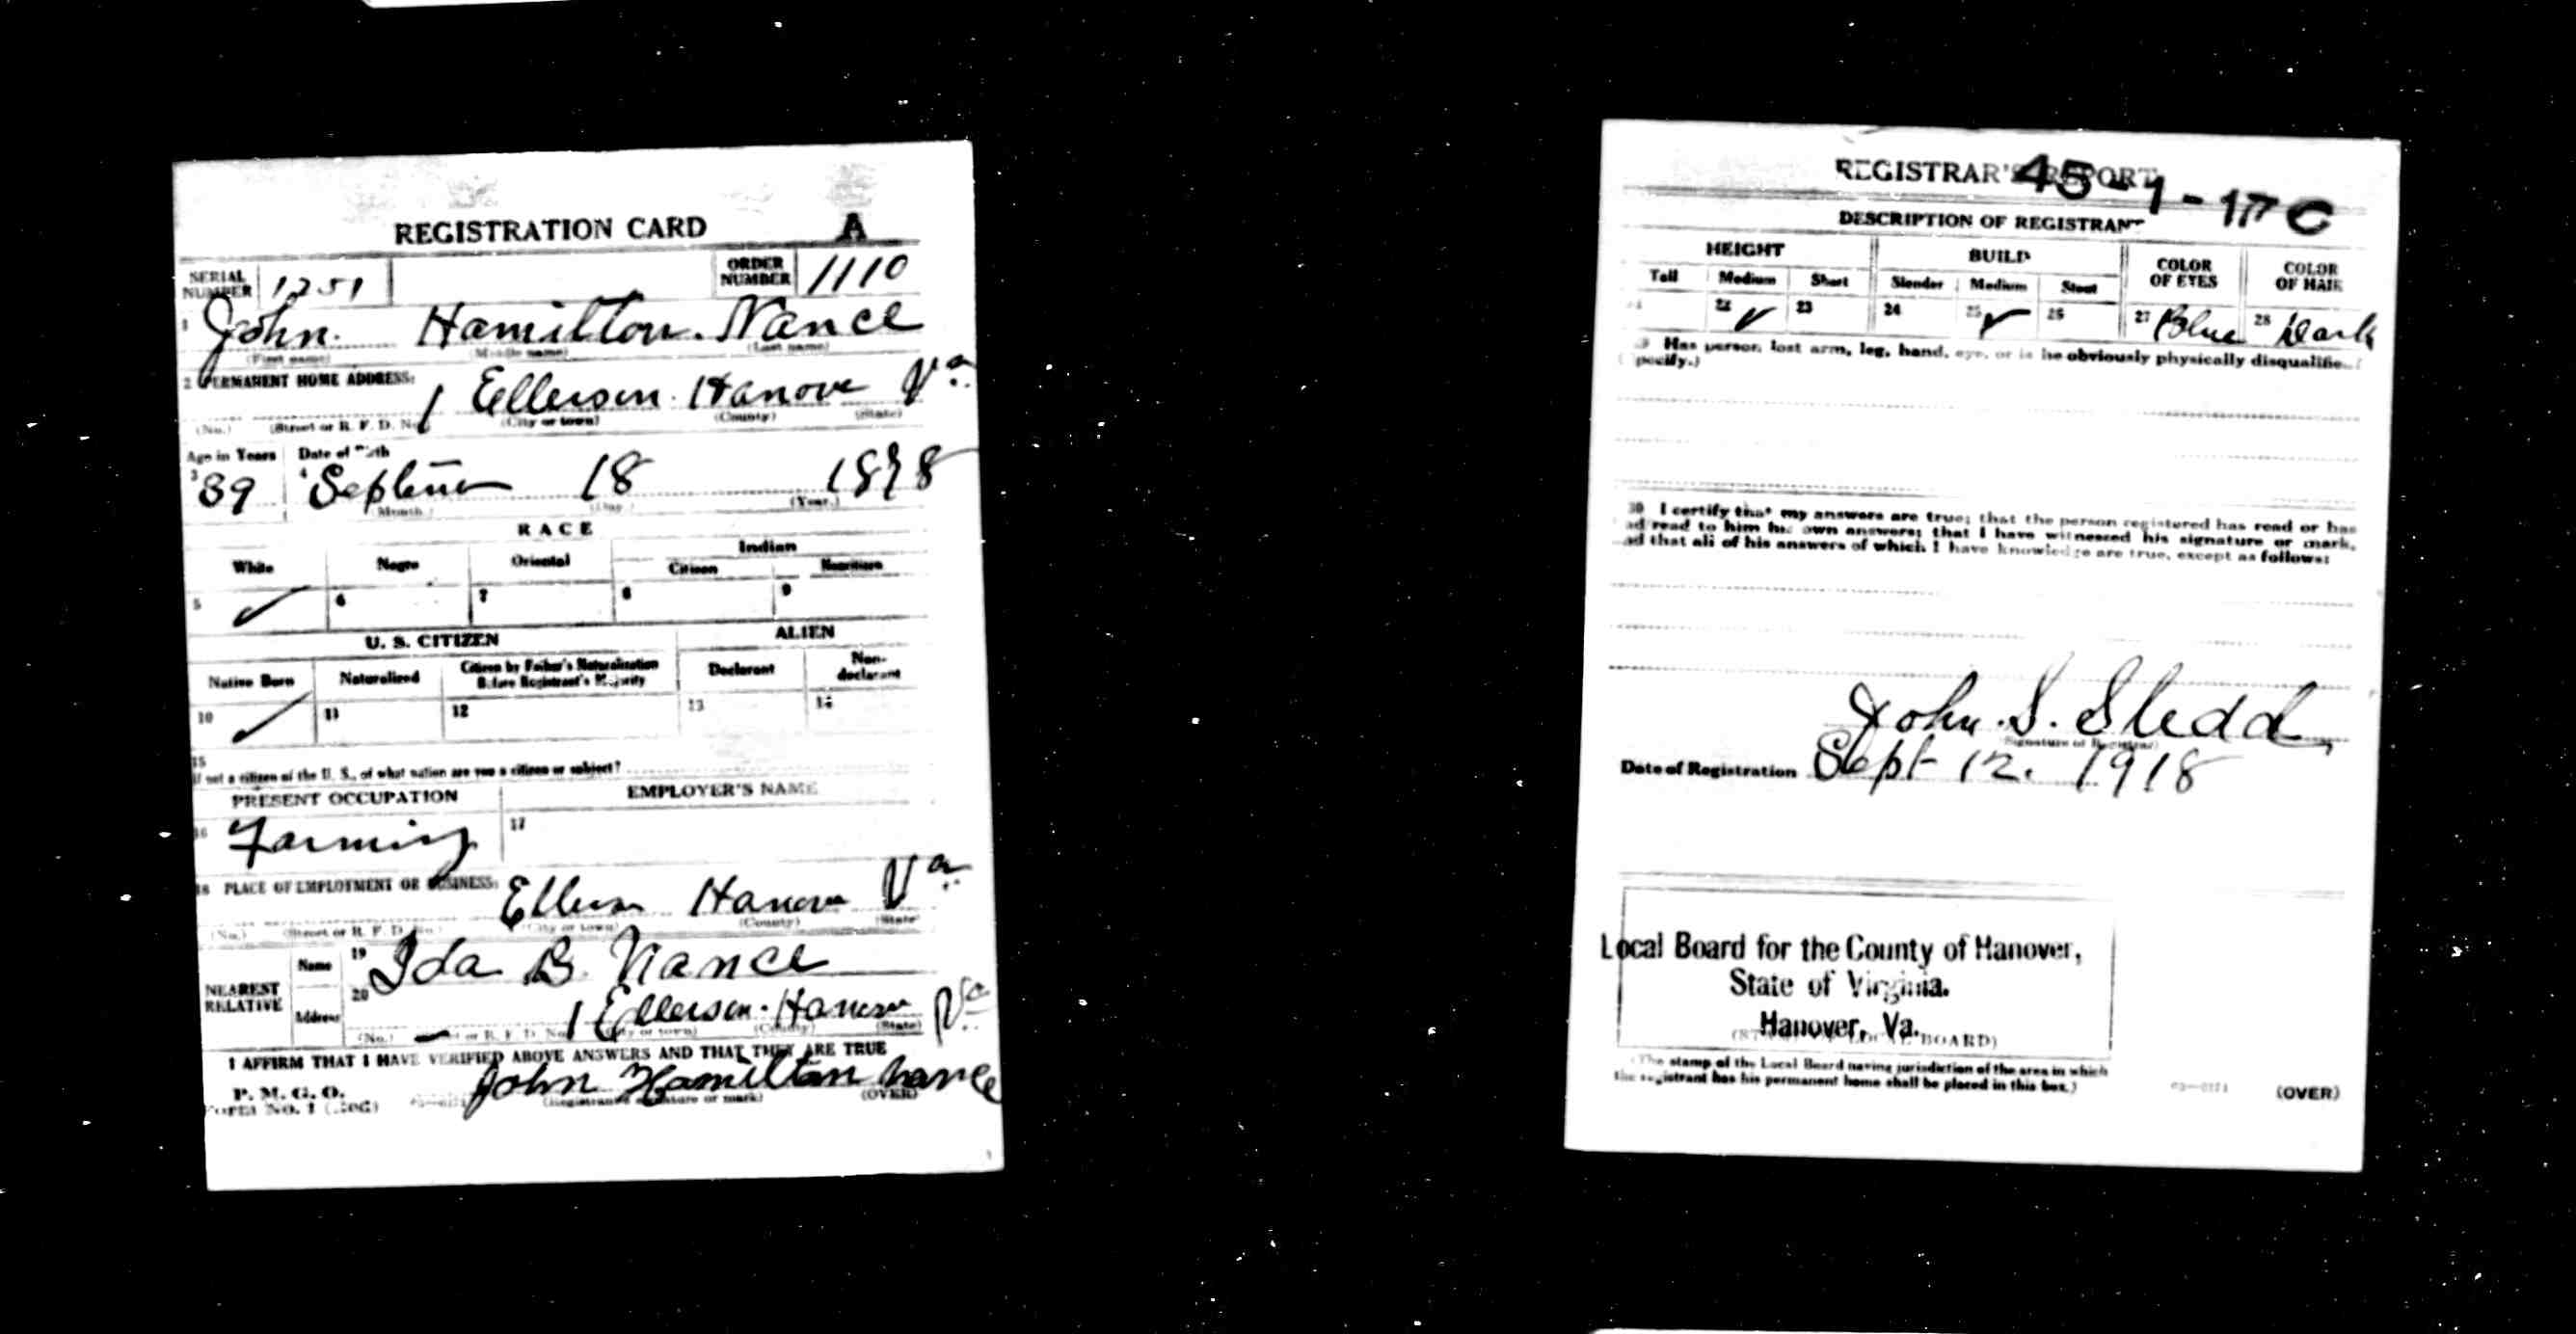 REGISTRATION CARD A
SERIAL NUMBER 1251 ORDER NUMBER 1110
1 John. Hamilton. Nance
(First name) (Middle name) (Last name)
2 PERMANENT HOME ADDRESS:
1 Ellerson Hanove Va
(No.) (Street or R. F. D. No.) (City or town) (County) (State)
Age in Years Date of Birth
3 39 4 September 18 1878
(Month.) (Day.) (Year.)
RACE
White Negro Oriental Indian
Citizen Noncitizen
5 ✓ 6 7 8 9
U. S. CITIZEN ALIEN
Native Born Naturalized Citizen by Father's Naturalization Before Registrant's Majority Declarant Non-declarant
10 ✓ 11 12 13 14
15
If not a citizen of the U. S., of what nation are you a citizen or subject?
PRESENT OCCUPATION EMPLOYER'S NAME
16 Farming 17
18 PLACE OF EMPLOYMENT OR BUSINESS:
Ellerson Hanover Va
(No.) (Street or R. F. D. No.) (City or town) (County) (State)
NEAREST RELATIVE
Name 19 Ida B. Nance
Address 20 1 Ellerson. Hanover Va
(No.) (City or town) (County) (State)
I AFFIRM THAT I HAVE VERIFIED ABOVE ANSWERS AND THAT THEY ARE TRUE
P. M. G. O.
Form No. 1 (Red) John Hamilton Nance
(Registrant's signature or mark) (OVER)
REGISTRAR'S REPORT
45-1-17 C
DESCRIPTION OF REGISTRANT
HEIGHT BUILD COLOR OF EYES COLOR OF HAIR
Tall Medium Short Slender Medium Stout
22 ✓ 23 24 25 ✓ 26 27 Blue 28 Dark
Has person lost arm, leg, hand, eye, or is he obviously physically disqualified?
(Specify.)
30 I certify that my answers are true; that the person registered has read or has
had read to him his own answers; that I have witnessed his signature or mark,
and that all of his answers of which I have knowledge are true, except as follows:
John. S. Sledd
(Signature of Registrar)
Date of Registration Sept 12. 1918
Local Board for the County of Hanover,
State of Virginia.
Hanover, Va.
(STAMP OF LOCAL BOARD)
(The stamp of the Local Board having jurisdiction of the area in which
the registrant has his permanent home shall be placed in this box.)
(OVER)